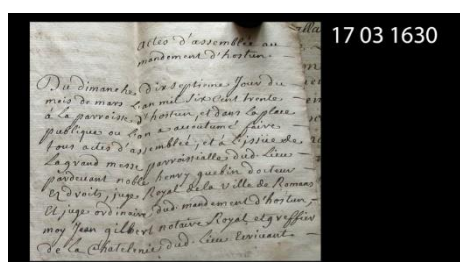 17 03 1630
actes d'assemblée au
mandement d'hostun
Du dimanche dix septieme Jour du
mois de mars L'an mil six Cent trente
à La parroisse d'hostun, et dans La place
publique ou L'on a accoutumé faire
tous actes d'assemblée, et à L'issüe de
La grand messe parroissialle dud. Lieu
pardevant noble henry guebin docteur
Ez droits, juge Royal de la ville de Romans
Et juge ordinaire dud. mandement d'hostun,
moy Jean gilbert notaire Royal et greffier
de La Chatelenie dud. Lieu Ecrivant